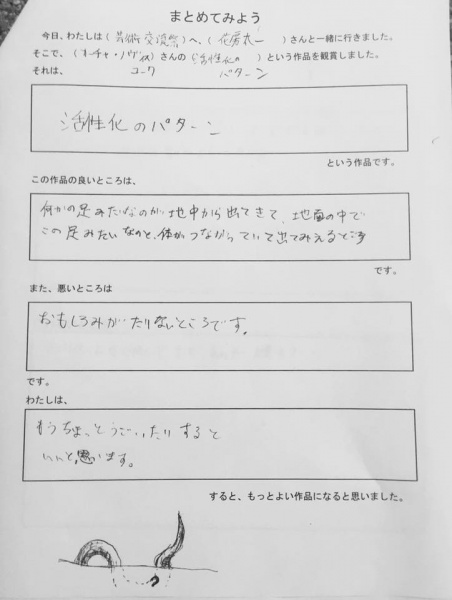 まとめてみよう
今日、わたしは(芸術交流祭)へ、( )さんと一緒に行きました。
そこで、( )さんの(活性化の )という作品を観賞しました。
それは、 ユーワ パターン
活性化のパターン
という作品です。
この作品の良いところは、
何かの足みたいなのが地中から出てきて、地面の中で
この足みたいなのと、体がつながっていて出てみえるところ
です。
また、悪いところは
おもしろみがたりないところです。
です。
わたしは、
もうちょっとうごいたりすると
いいと思います。
すると、もっとよい作品になると思いました。